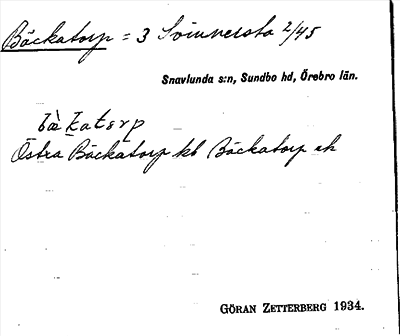 Bäckatorp = 3 Sinnersta 2/45
Snavlunda s:n, Sundbo hd, Örebro län.
bà katərp
Östra Bäckatorp kb Bäckatorp ek
GÖRAN ZETTERBERG 1934.